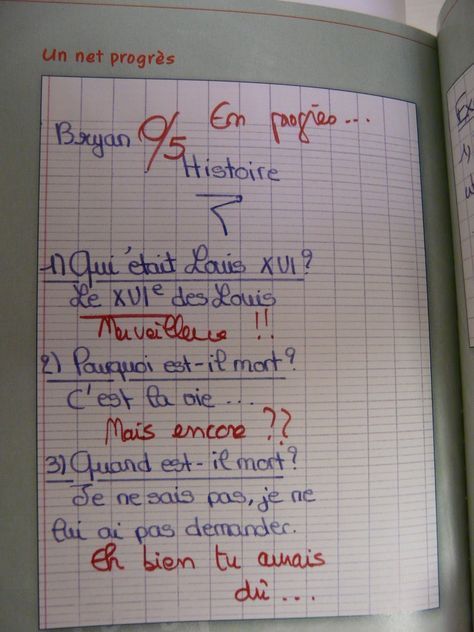 Un net progrès
En progrès...
Bryan 0/5
Histoire
1) Qui était Louis XVI ?
Le XVIe des Louis
Merveilleux !!
2) Pourquoi est-il mort ?
C'est la vie ...
Mais encore ??
3) Quand est-il mort ?
Je ne sais pas, je ne
lui ai pas demander.
Eh bien tu aurais
dû ...